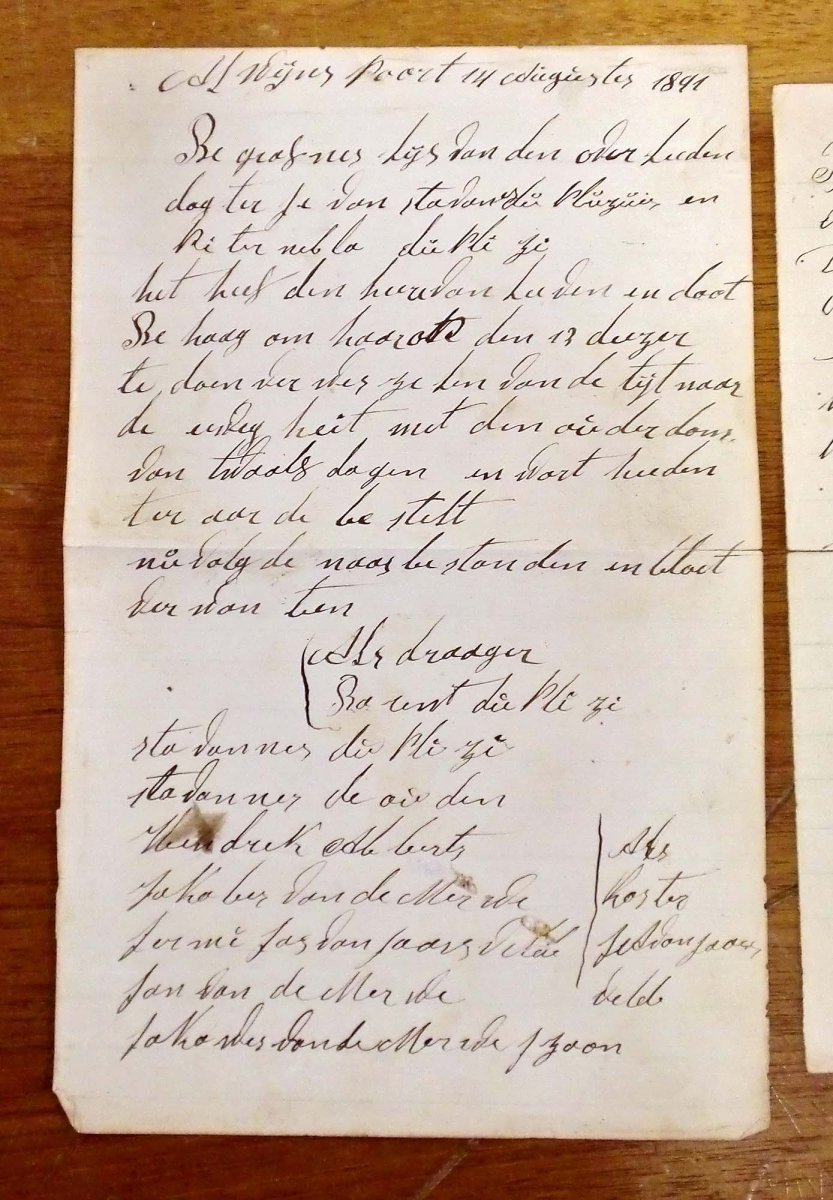 Alwijns Poort 14 Augustes 1891
Be graf nes lijs van den over leeden
dog ter je van stavanes du Pluzūie en
Pi ter nel la du Pli zi
het heef den heere van leeven en doot
Be haag om haar op den 13 deezer
te doen ver wes ze len van de tijt naar
de eeweg heit met den ouder dom
van twaalf dagen en wort heeden
ter aar de be stelt
nu volg de naas be standen en bloet
ver wan ten
Als draager
Ba rent du Pli zi
sta vannes du Pli zi
stavannes de ou den
Hendrek Al berts
Jako bes van de Mer we
Jer mi Jas van Jaars veld
Jan van de Mer we
Jako wes van de Mer we J zoon
Als
Kos ter
Js van Jaars
veld